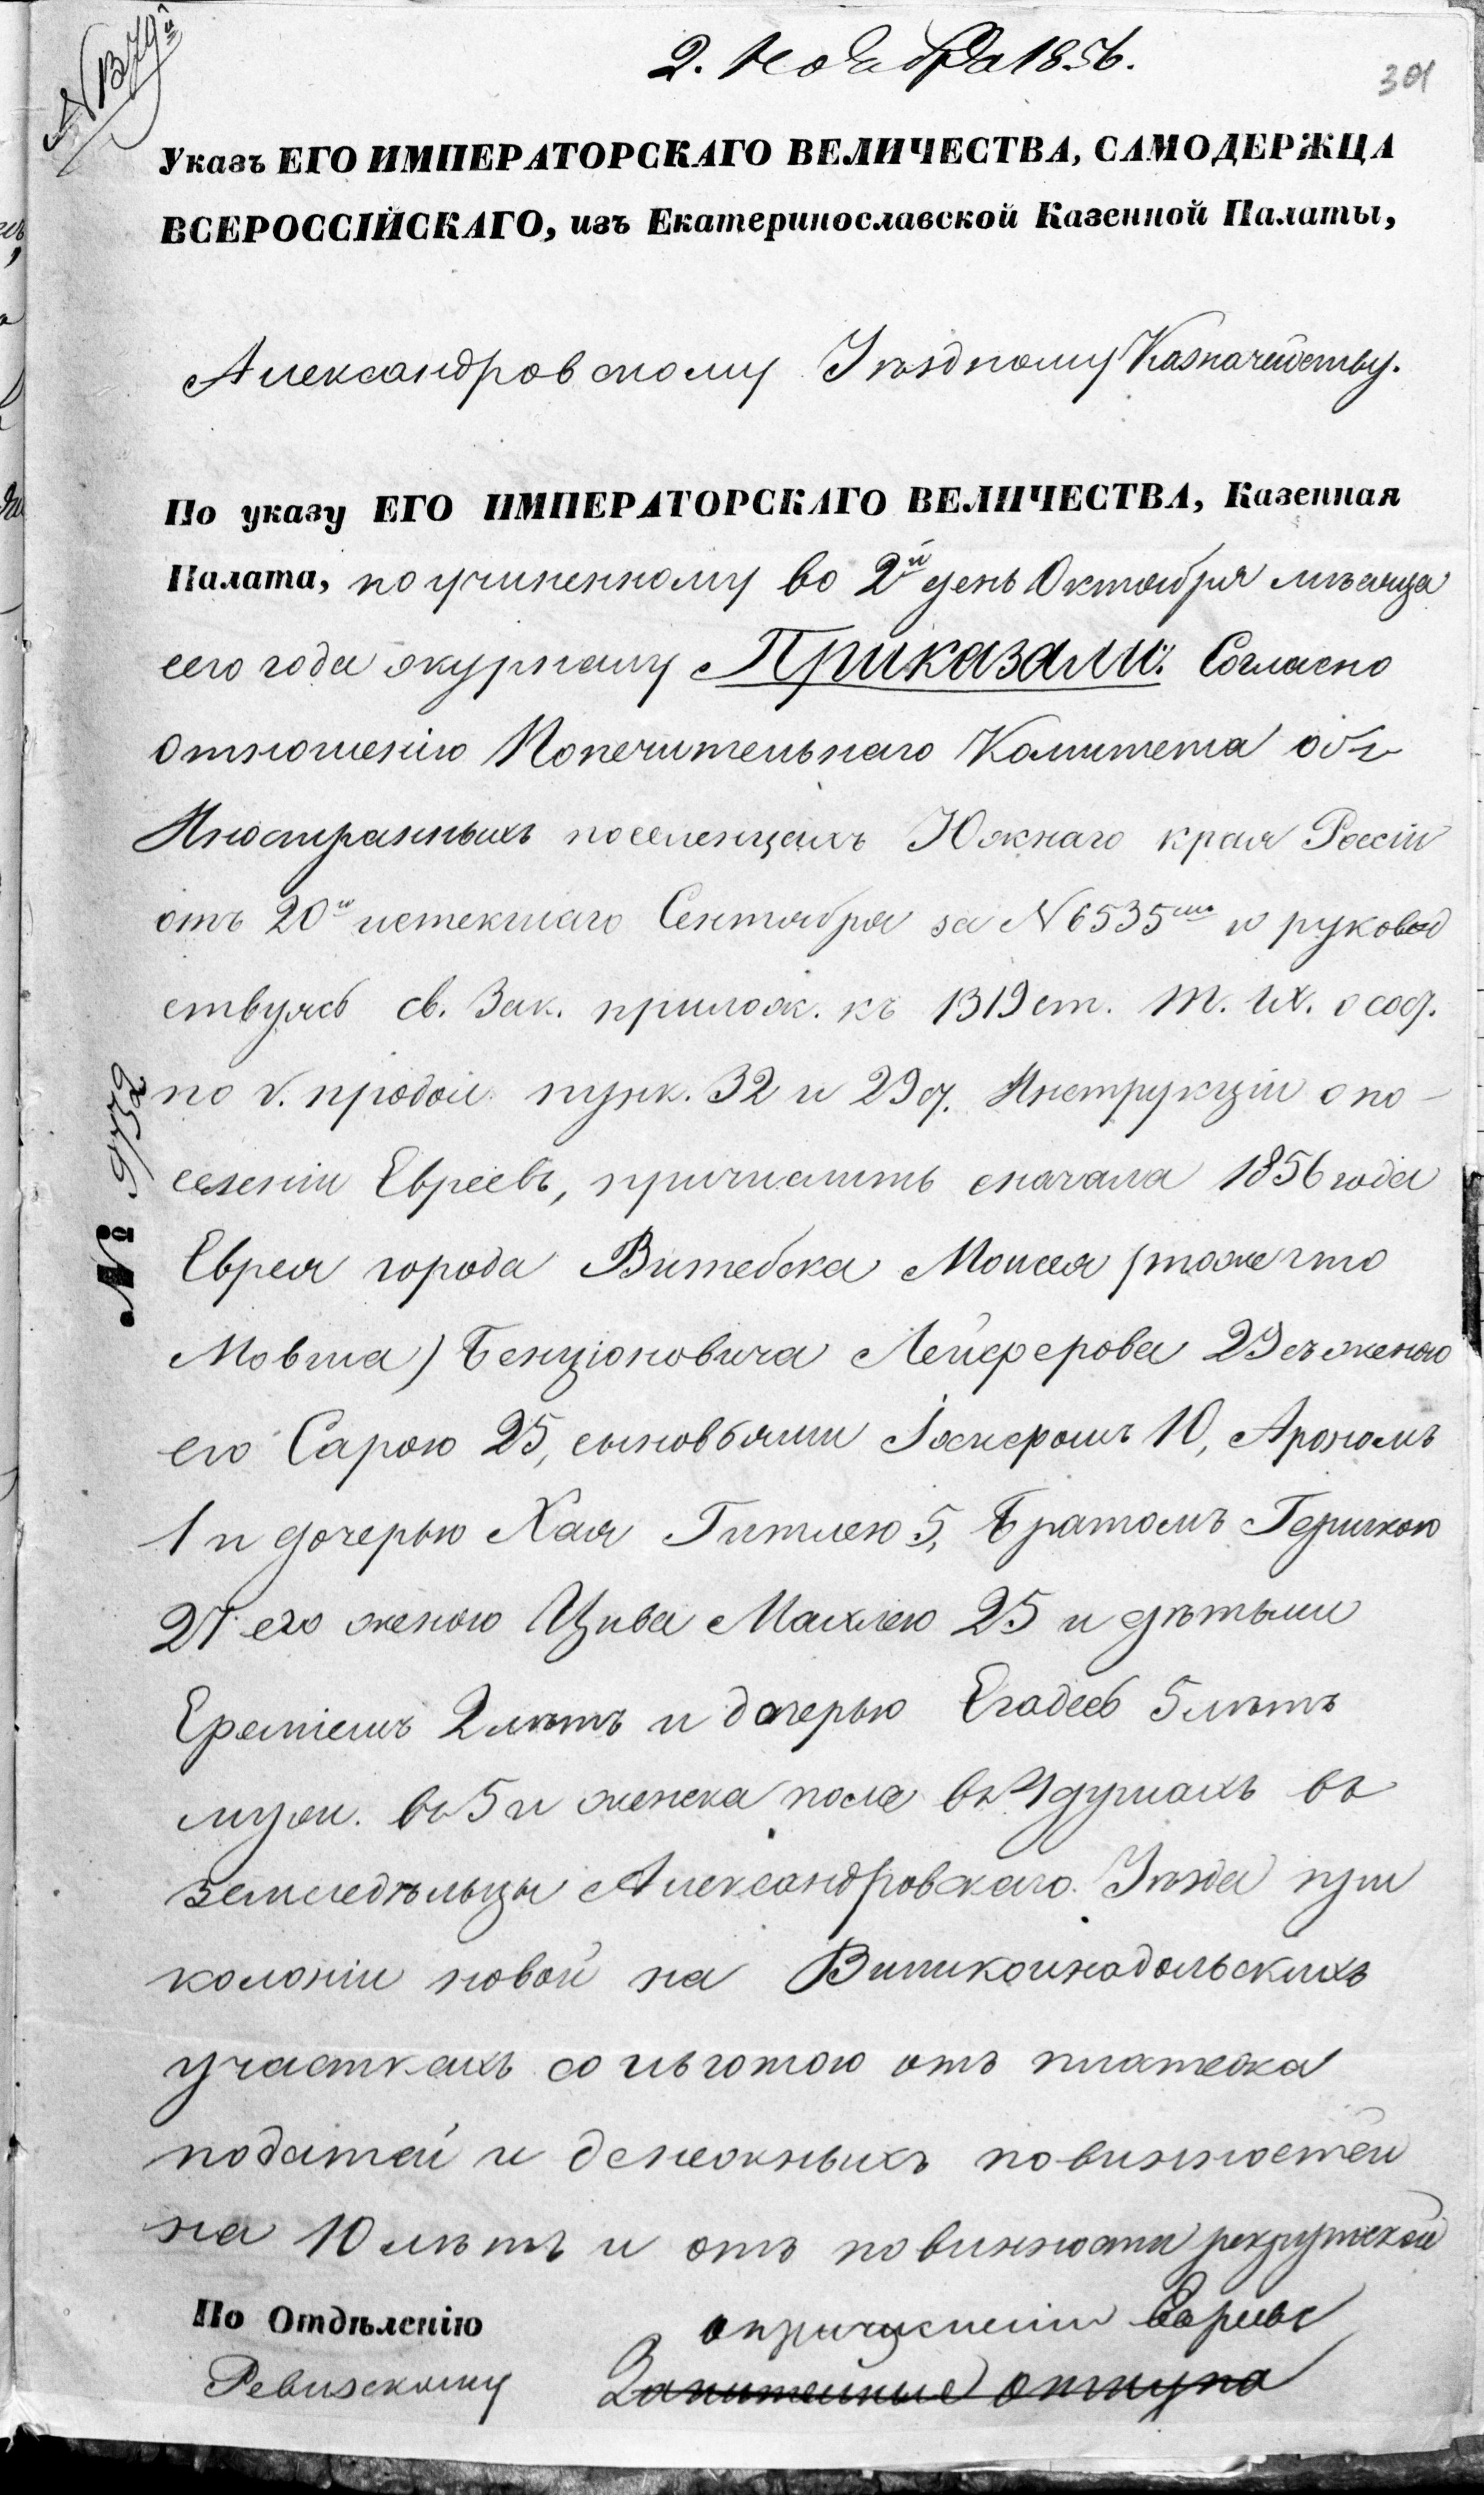 2. Ноября 1856.
301
Указъ ЕГО ИМПЕРАТОРСКАГО ВЕЛИЧЕСТВА, САМОДЕРЖЦА
ВСЕРОССІЙСКАГО, изъ Екатеринославской Казенной Палаты,
Александровскому Уѣздному Казначейству.
По указу ЕГО ИМПЕРАТОРСКАГО ВЕЛИЧЕСТВА, Казенная
Палата, по учиненному во 2й день Октября мѣсяца
сего года журналу Приказали: Согласно
отношенію Попечительнаго Комитета объ
Иностранныхъ поселенцахъ Южнаго края Россіи
отъ 20го истекшаго Сентября за N 6535мъ и руковод
ствуясь св. Зак. прилож. къ 1319 ст. т. IX. о сос.
по V. продол. пунк. 32 и 29 §. Инструкціи о по-
селеніи Евреевъ, причислить сначала 1856 года
Еврея города Витебска Моисея (тоже что
Мовша) Бенціоновича Лейферова 29 съ женою
его Сарою 25, сыновьями Іосифомъ 10, Арономъ
1 и дочерью Хая Гитлею 5, Братомъ Гершкою
27 его женою Цива Махлею 25 и дѣтьми
Еремѣемъ 2 лѣтъ и дочерью 5 лѣтъ
муж. въ 5 и женска пола въ 4 душахъ въ
земледѣльцы Александровскаго Уѣзда при
колоніи новой на
участкахъ со льготою отъ платежа
податей и денежныхъ повинностей
на 10 лѣтъ и отъ повинности рекрутской
По Отдѣленію
Ревизскому
о причисленіи Еврея
Запитейные откупа
№ 9732
N 1379й